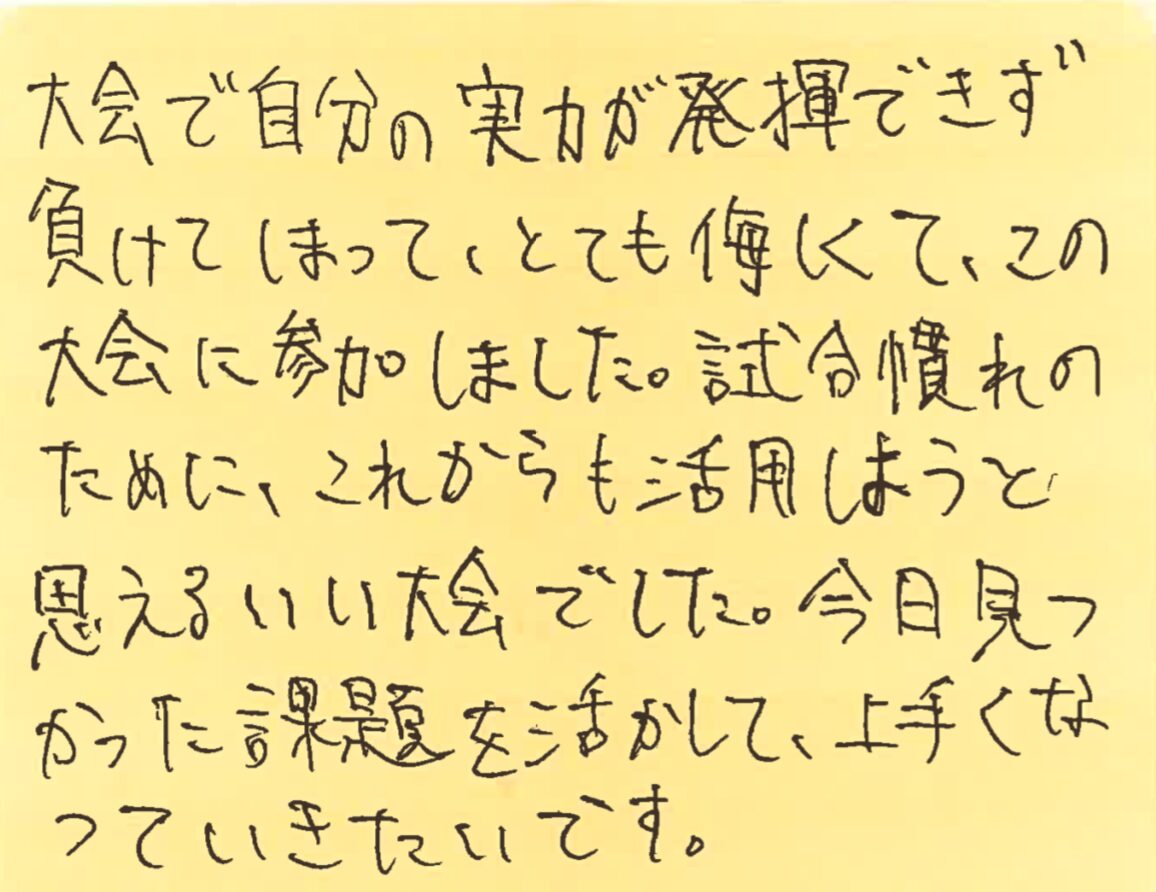 大会で自分の実力が発揮できず
負けてしまって、とても侮しくて、この
大会に参加しました。試合慣れの
ために、これからも活用しようと
思えるいい大会でした。今日見つ
かった課題を活かして、上手くな
っていきたいです。